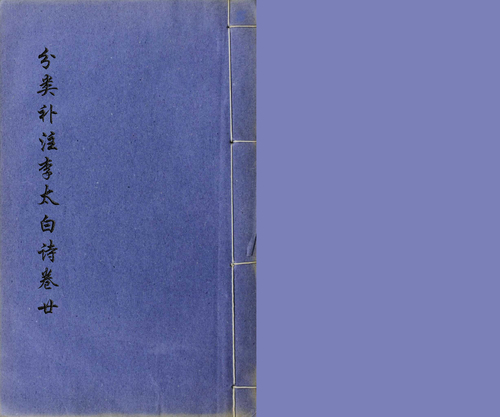 分类补注李太白诗卷廿